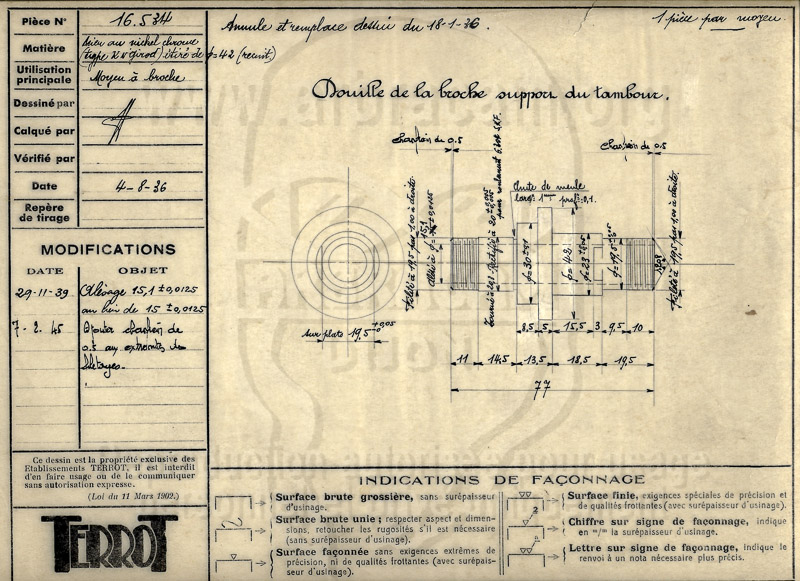 Pièce N° 16.534
Matière Acier au nickel chrome
(type KN Girod) étiré de φ=42 (recuit)
Utilisation
principale Moyen à broche
Dessiné par
Calqué par
Vérifié par
Date 4-8-36
Repère
de tirage
MODIFICATIONS
DATE OBJET
29-11-39 Alésage 15,1 ±0,0125
au lieu de 15 ±0,0125
7-2-45 Ajouté chanfrein de
0.5 aux extremités de
filetages.
Ce dessin est la propriété exclusive des
Etablissements TERROT, il est interdit
d'en faire usage ou de le communiquer
sans autorisation expresse.
(Loi du 11 Mars 1902.)
TERROT
Annule et remplace dessin du 18-1-36.
1 pièce par moyeu.
Douille de la broche support du tambour.
chanfrein de 0.5
chanfrein de 0.5
Fileté à 19,5 pas 1,00 à droite
15,1
pour roulement SKF.
fuite de meule
larg. 1 prof. 0,1.
φ=30
φ=42
φ=23
φ=19,5
Fileté à 19,5 pas 1,00 à droite
sur plats 19,5 +0,05
8,5 5 15,5 3 9,5 10
11 14,5 13,5 18,5 19,5
77
INDICATIONS DE FAÇONNAGE
Surface brute grossière, sans surépaisseur
d'usinage.
Surface brute unie; respecter aspect et dimen-
sions, retoucher les rugosités s'il est nécessaire
(sans surépaisseur d'usinage).
Surface façonnée sans exigences extrêmes de
précision, ni de qualités frottantes (avec surépais-
seur d'usinage).
Surface finie, exigences spéciales de précision et
de qualités frottantes (avec surépaisseur d'usinage).
Chiffre sur signe de façonnage, indique
en m/m la surépaisseur d'usinage.
Lettre sur signe de façonnage, indique le
renvoi à un nota nécessaire plus précis.